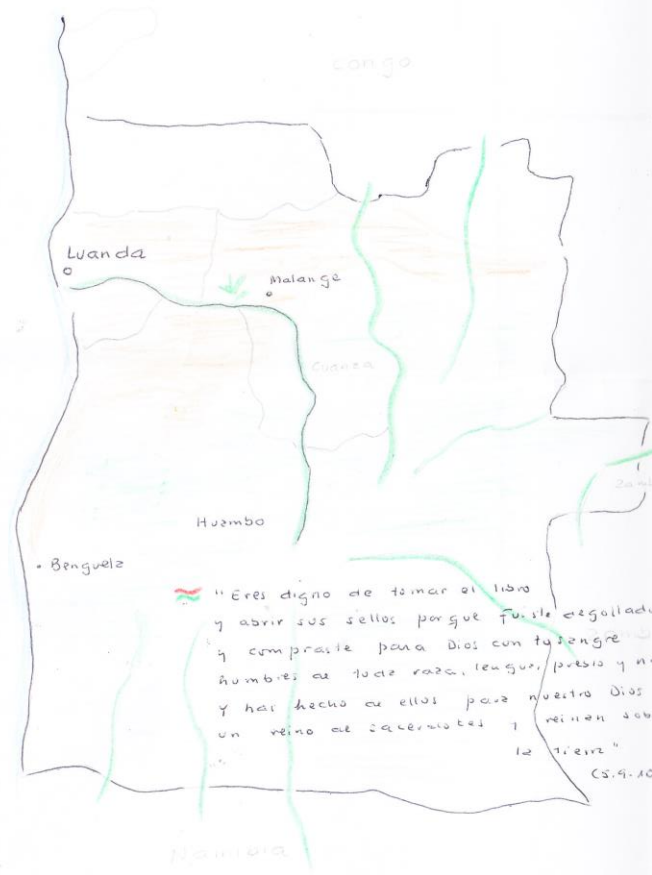 Congo
Luanda
Malange
Cuanza
Huambo
Benguela
Zamb
"Eres digno de tomar el libro
y abrir sus sellos porque fuiste degollado
y compraste para Dios con tu sangre
hombres de toda raza, lengua, y
y has hecho de ellos para nuestro Dios
un reino de sacerdotes y reinen sob
la tierra"
(5.9.10
Namibia